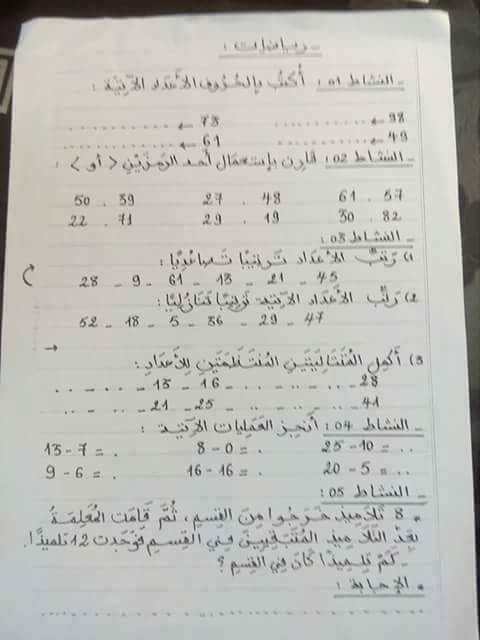 رياضيات :
- النشاط 01 : أكتب بالحروف الأعداد الآتية :
98 ← .............. 73 ← ..............
49 ← .............. 61 ← ..............
- النشاط 02 : قارن بإستعمال أحد الرمزين < أو > :
61 . 57 27 . 48 50 . 39
30 . 82 29 . 19 22 . 71
- النشاط 03 :
1) رتب الأعداد ترتيبا تصاعديا :
45 - 21 - 13 - 61 - 9 - 28
2) رتب الأعداد الآتية ترتيبا تنازليا :
47 - 29 - 36 - 5 - 18 - 52
3) أكمل المتتاليتين المنتظمتين للأعداد :
28 - .. - .. - .. - 16 - 13 - .. - .. - ..
41 - .. - .. - .. - 25 - 21 - .. - .. - ..
- النشاط 04 : أنجز العمليات الآتية :
25 - 10 = .. 8 - 0 = . 13 - 7 = .
20 - 5 = .. 16 - 16 = . 9 - 6 = .
- النشاط 05 :
* 8 تلاميذ خرجوا من القسم ، ثم قامت المعلمة
بعد التلاميذ المتبقين في القسم فوجدت 12 تلميذا.
- كم تلميذا كان في القسم ؟
* الإجابة :